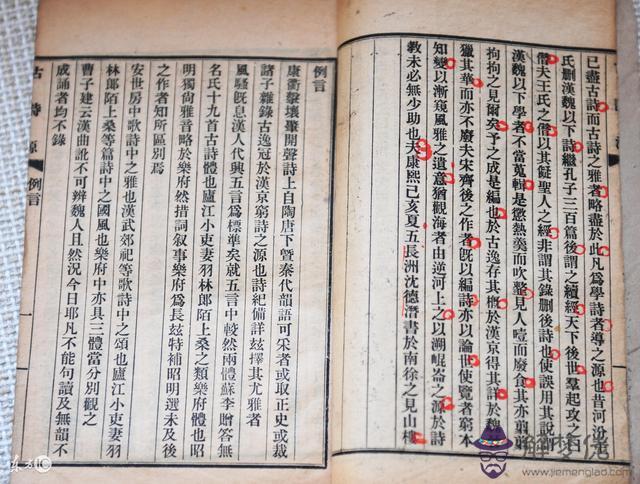 已盡古詩而古詩之雅者略盡於此凡爲學詩者導之源也昔河汾王
氏刪漢魏以下詩繼孔子三百篇後謂之續經天下後世羣起攻之曰
僭夫王氏之僭以其儗聖人之經非謂其錄刪後詩也使誤用其說
漢魏以下學者不當蒐輯是懲熱羹而吹虀見人噎而廢食其亦翦翦
拘拘之見爾矣予之成是編也於古逸存其槪於漢京得其詳於魏
獵其華而亦不廢夫宋齊後之作者旣以編詩亦以論世使覽者窮本
知變以漸窺風雅之遺意猶觀海者由逆河上之以溯崐崙之源於詩
敎未必無少助也夫康熙己亥夏五長洲沈德潛書於南徐之見山樓
例言
康衢擊壤肇開聲詩上自陶唐下曁秦代韻語可采者或取正史或裁
諸子雜錄古逸冠於漢京窮詩之源也詩紀備詳茲擇其尤雅者
風騷旣息漢人代興五言爲標準矣就五言中較然兩體蘇李贈答無
名氏十九首古詩體也廬江小吏妻羽林郎陌上桑之類樂府體也昭
明獨尚雅音略於樂府然措詞叙事樂府爲長玆特補昭明選未及後
之作者知所區別焉
安世房中歌詩中之雅也漢武郊祀等歌詩中之頌也廬江小吏妻羽
林郎陌上桑等篇詩中之國風也樂府中亦具三體當分別觀之
曹子建云漢曲訛不可辨魏人且然況今日耶凡不能句讀及無韻不
成誦者均不錄
古詩源
例言
一
www.jiemenglad.com